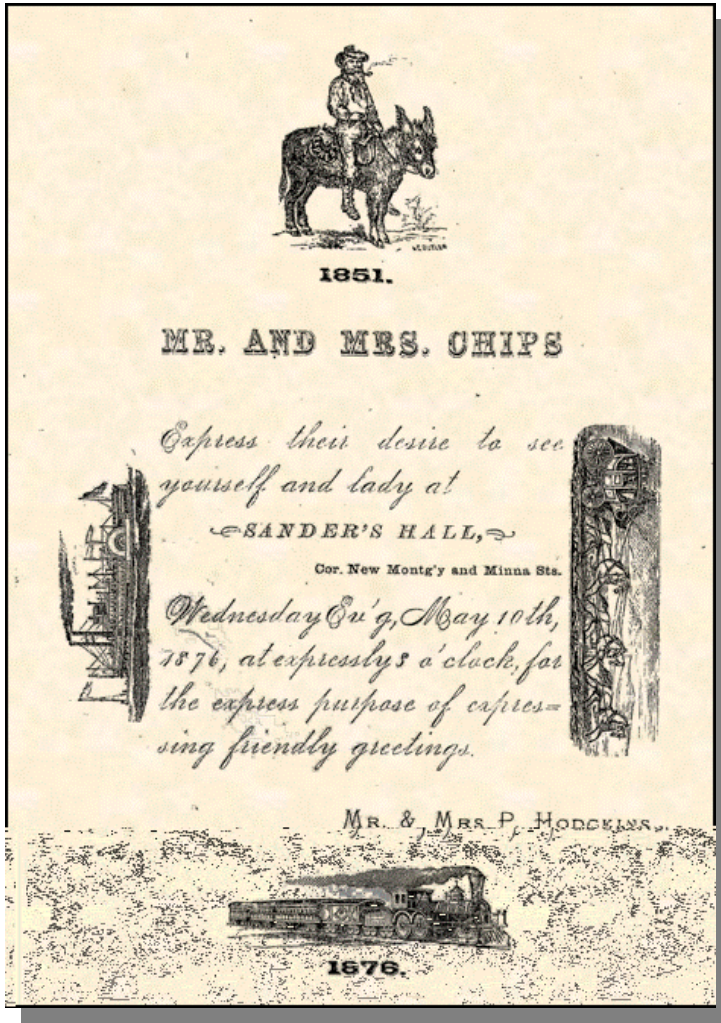 1851.
MR. AND MRS. CHIPS
Express their desire to see
yourself and lady at
SANDER'S HALL,
Cor. New Montg'y and Minna Sts.
Wednesday Ev'g, May 10th,
1876, at expressly 8 o'clock, for
the express purpose of expres=
sing friendly greetings.
MR. & MRS P. HODGKINS.
1876.